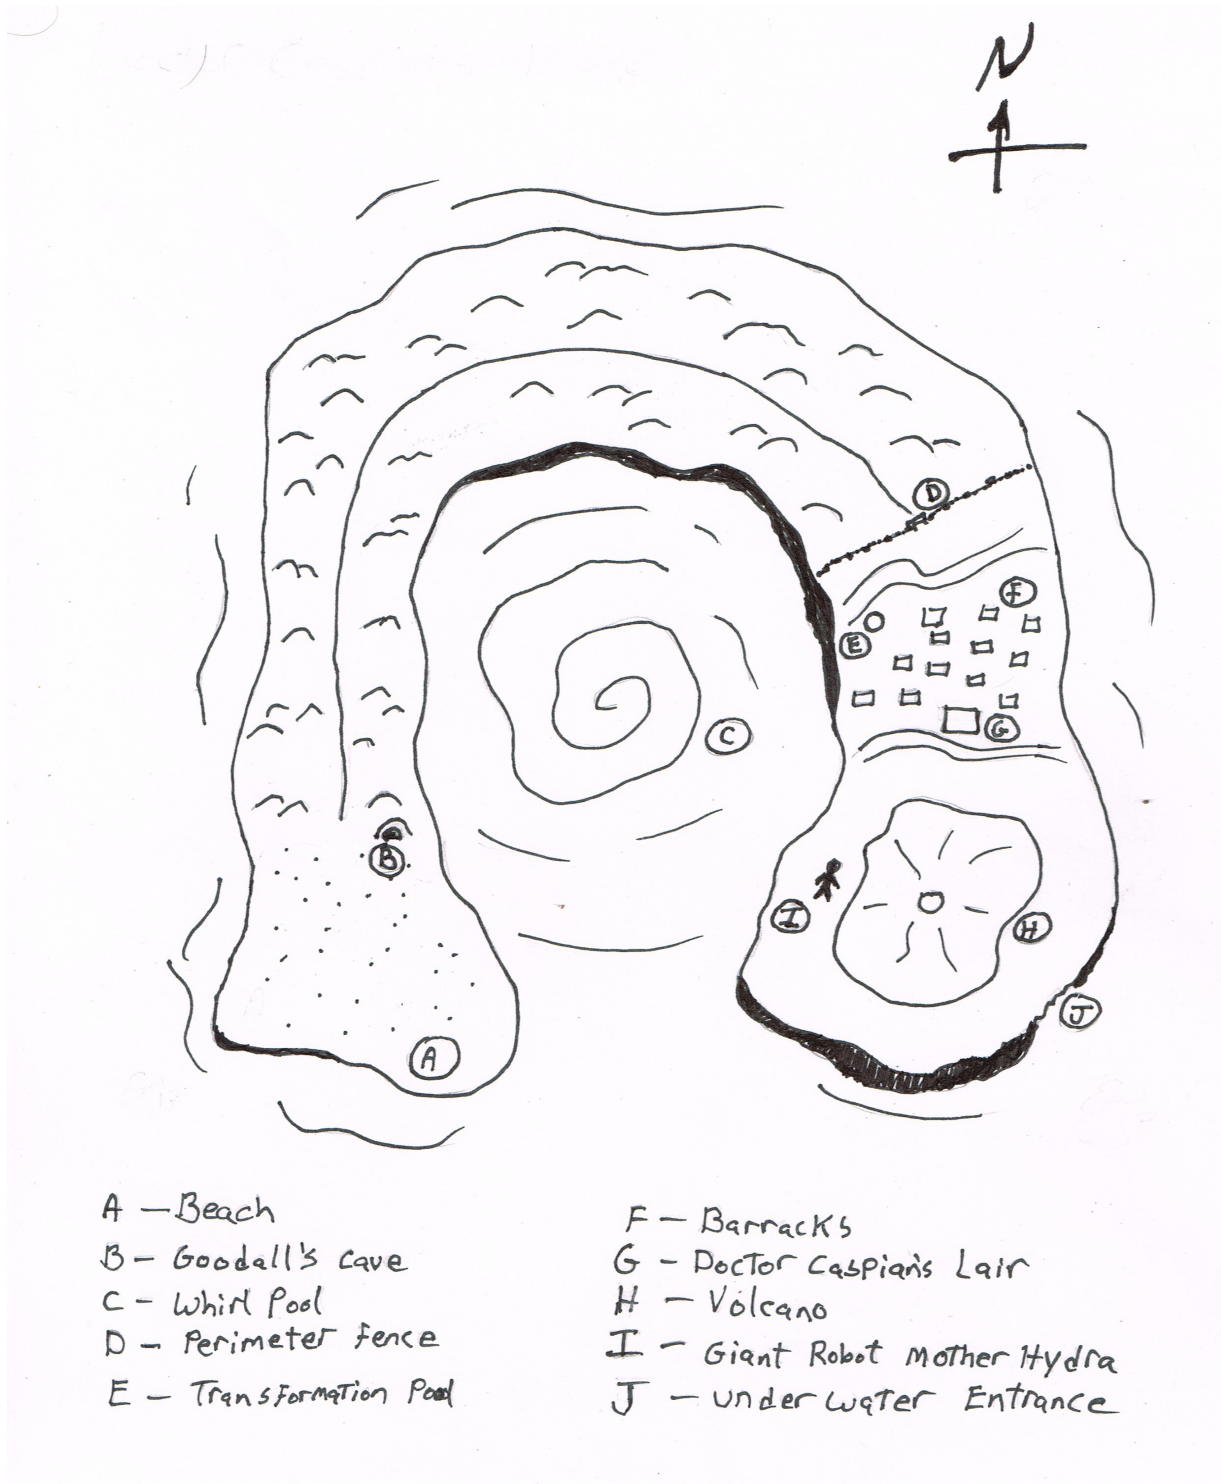 N
D
F
E
G
C
B
I
H
J
A
A — Beach
B — Goodall's cave
C — Whirl Pool
D — Perimeter Fence
E — Transformation Pool
F — Barracks
G — Doctor Caspian's Lair
H — Volcano
I — Giant Robot Mother Hydra
J — underwater Entrance